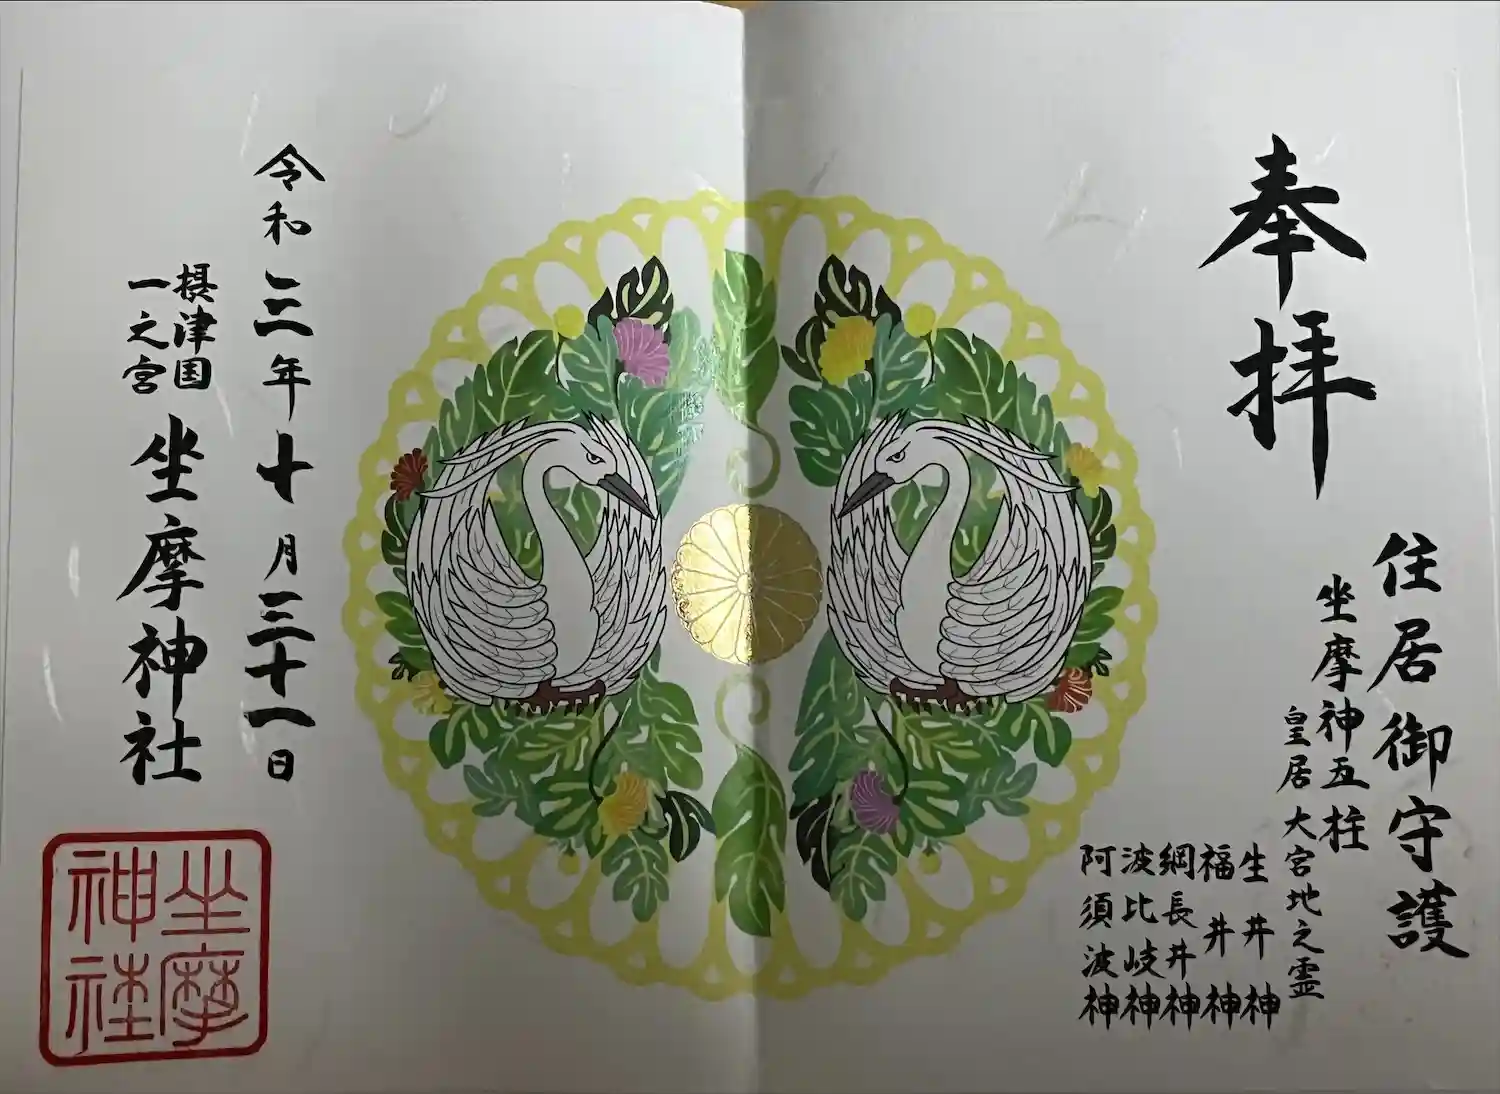 奉拝
住居御守護
坐摩神五柱
皇居大宮地之霊
生井神
福井神
綱長井神
波比岐神
阿須波神
令和三年十月三十一日
摂津国
一之宮
坐摩神社
坐摩
神社